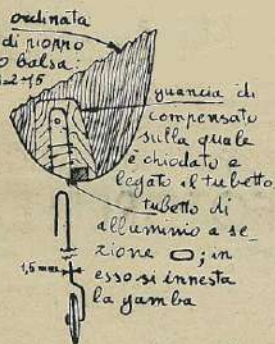 ordinata
di pioppo
o balsa:
guancia di
compensato
sulla quale
è chiodato e
legato il tubetto
tubetto di
alluminio a se-
zione ▭; in
esso si innesta
la gamba
1,5 mm